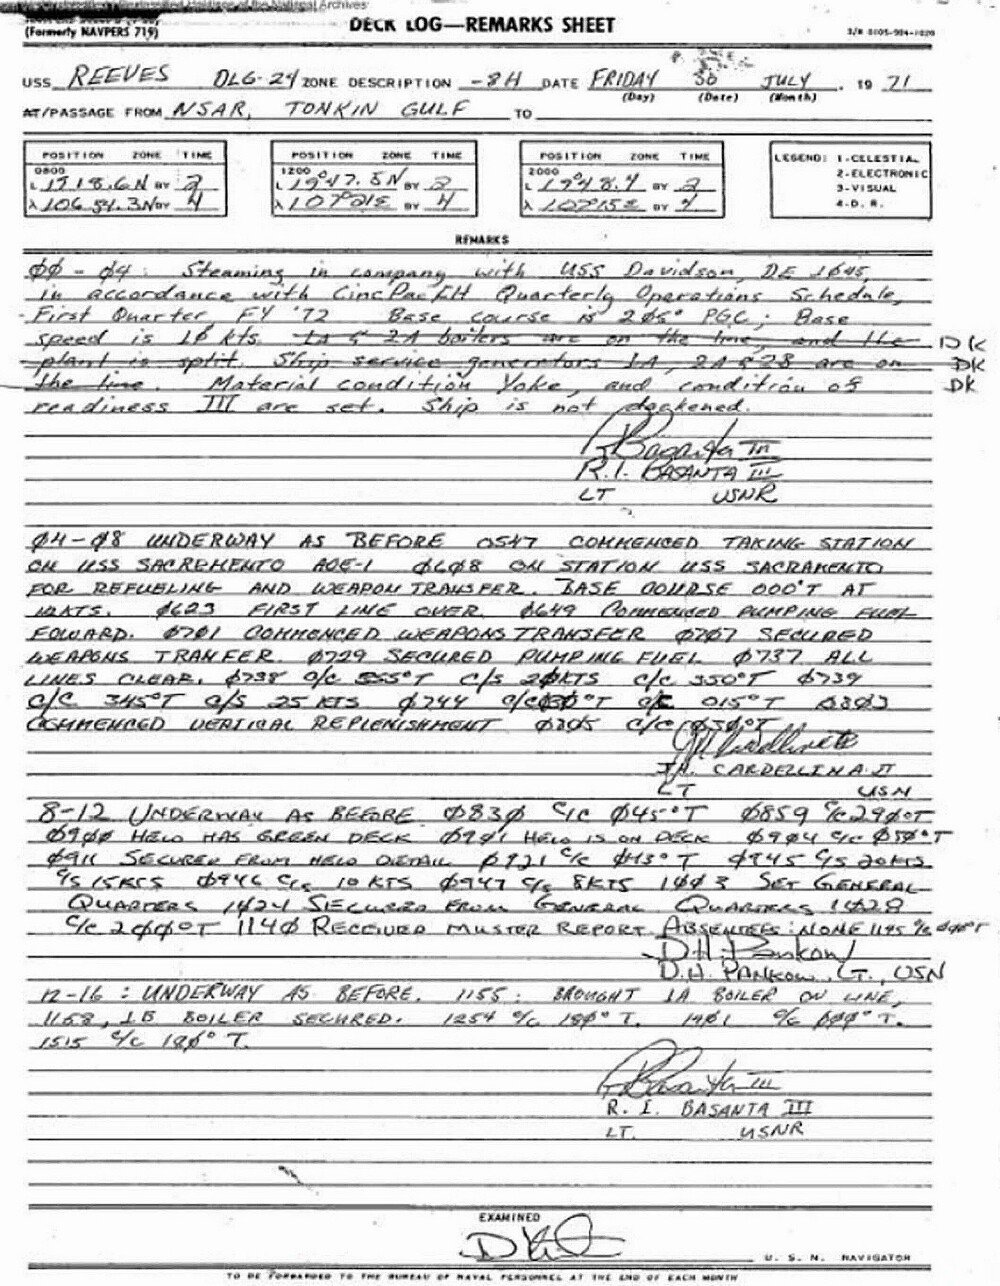 National Archives
(Formerly NAVPERS 719)
DECK LOG—REMARKS SHEET
USS REEVES DLG-24 ZONE DESCRIPTION -8H DATE FRIDAY 30 JULY, 19 71
(Day) (Date) (Month)
AT/PASSAGE FROM NSAR, TONKIN GULF TO
POSITION ZONE TIME POSITION ZONE TIME POSITION ZONE TIME LEGEND: 1-CELESTIAL
0800 1200 2000 2-ELECTRONIC
L 1918.6N BY 2 L 19°47.5N BY 2 L 19°48.4 BY 2 3-VISUAL
λ 106 54.3N BY 4 λ 107°21E BY 4 λ 107°15E BY 4 4-D. R.
REMARKS
ØØ - Ø4: Steaming in company with USS Davidson, DE 1045
in accordance with CincPacFlt Quarterly Operations Schedule,
First Quarter, FY '72 Base course is 205° PGC; Base
speed is 16 kts. 1A & 2A boilers are on the line, and the DK
plant is split. Ship service generators 1A, 2A & 2B are on DK
the line. Material condition Yoke, and condition of DK
readiness III are set. Ship is not darkened.
R Basanta III
R. I. BASANTA III
LT USNR
Ø4-Ø8 UNDERWAY AS BEFORE 0547 COMMENCED TAKING STATION
ON USS SACREMENTO AOE-1 Ø6Ø8 ON STATION USS SACRAMENTO
FOR REFUELING AND WEAPON TRANSFER. BASE COURSE 000°T AT
12KTS. Ø623 FIRST LINE OVER. Ø649 COMMENCED PUMPING FUEL
FOWARD. Ø7Ø1 COMMENCED WEAPONS TRANSFER Ø7Ø7 SECURED
WEAPONS TRANFER. Ø729 SECURED PUMPING FUEL Ø737 ALL
LINES CLEAR. Ø738 C/C 355°T C/S 2ØKTS C/C 350°T Ø739
C/C 345°T C/S 25 KTS Ø744 C/C Ø3Ø°T C/C 015°T Ø8Ø3
COMMENCED VERTICAL REPLENISHMENT Ø8Ø5 C/C Ø3Ø°T
J.H. CARDELLINA II
LT USN
8-12 UNDERWAY AS BEFORE Ø83Ø C/C Ø45°T Ø859 C/C 29Ø°T
Ø9ØØ HELO HAS GREEN DECK Ø9Ø1 HELO IS ON DECK Ø9Ø4 C/C Ø5Ø°T
Ø911 SECURED FROM HELO DETAIL Ø921 C/C Ø45°T Ø945 C/S 20KTS
C/S 15KTS Ø946 C/S 10 KTS Ø947 C/S 8KTS 1ØØ3 SET GENERAL
QUARTERS 1Ø24 SECURED FROM GENERAL QUARTERS 1Ø28
C/C 2ØØ°T 114Ø RECEIVED MUSTER REPORT ABSENTEES: NONE 1145 C/C ØØØ°T
D.H. Pankow
D.H. PANKOW, LT., USN
12-16: UNDERWAY AS BEFORE. 1155: BROUGHT 1A BOILER ON LINE,
1158, 1B BOILER SECURED. 1254 C/C 18Ø°T. 14Ø1 C/C ØØØ°T.
1515 C/C 18Ø°T.
R Basanta III
R. I. BASANTA III
LT. USNR
EXAMINED
U. S. N. NAVIGATOR
TO BE FORWARDED TO THE BUREAU OF NAVAL PERSONNEL AT THE END OF EACH MONTH